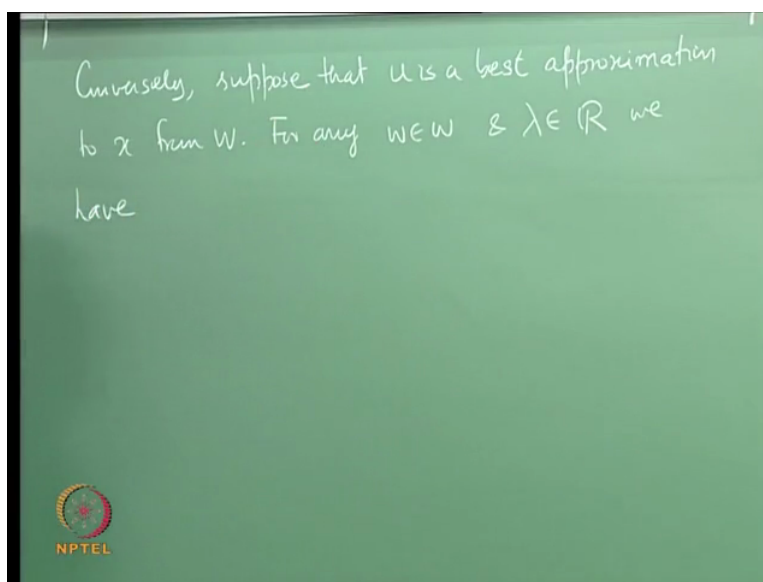 Conversely, suppose that u is a best approximation
to x from W. For any w∈W & λ∈ℝ we
have
NPTEL